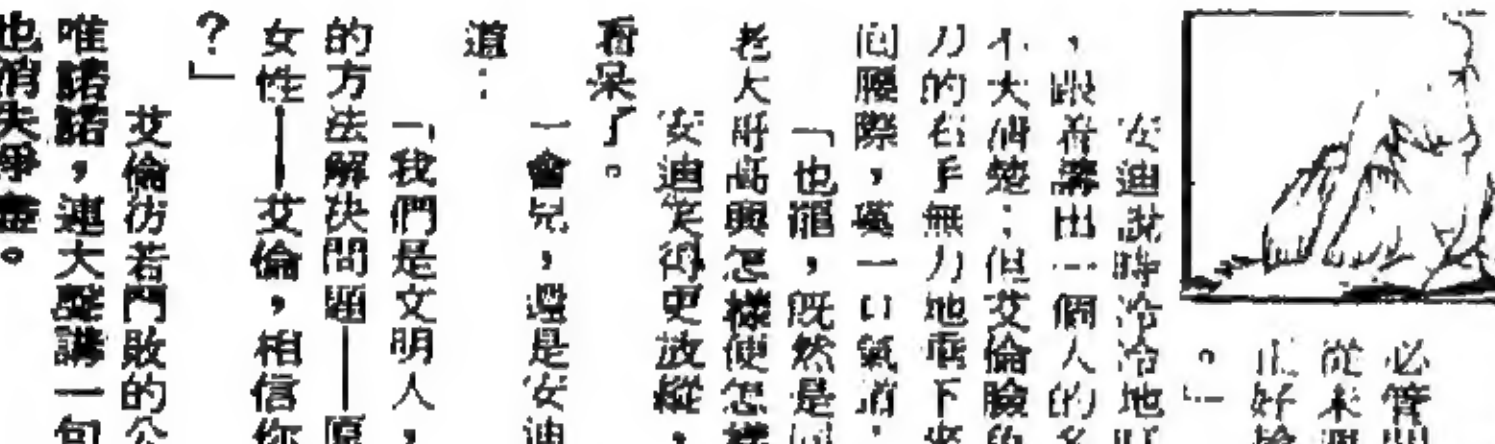 必管
從未
正好
。」
安迪說時冷冷地
,跟着講出一個人的名
不大清楚;但艾倫臉色
刀的右手無力地垂下
回腰際,嘆一口氣道:
「也罷,既然是同
老大哥高興怎樣便怎樣
安迪笑得更放縱,
看呆了。
一會兒,還是安迪
道:
「我們是文明人,
的方法解決問題——
女性——艾倫,相信你
?」
艾倫彷若鬥敗的公
唯諾諾,連大聲講一句
也消失淨盡。